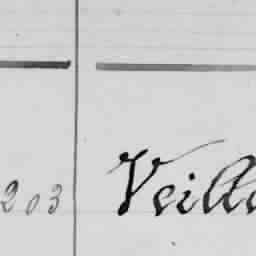 203 Veilla